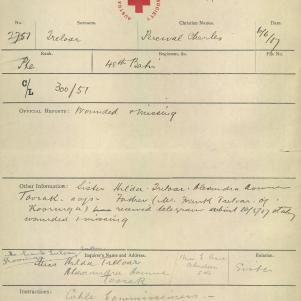 SOCIETY
No. Surname. Christian Names.
2751 Treloar Percival Charles 6/6/17
Rank. Regiment, &c. File No.
Pte 48th Batt
C/L 300/51
OFFICIAL REPORTS: Wounded & missing
Other Information: Sister Hilda Treloar Alexandra Avenue
Toorak says Father (Mr. Frank Treloar of
received telegram about stating
wounded & missing
Inquirer's Name and Address. Relation.
Miss Hilda Treloar Sister
Alexandra Avenue
Toorak
Instructions: Cable Commissioners